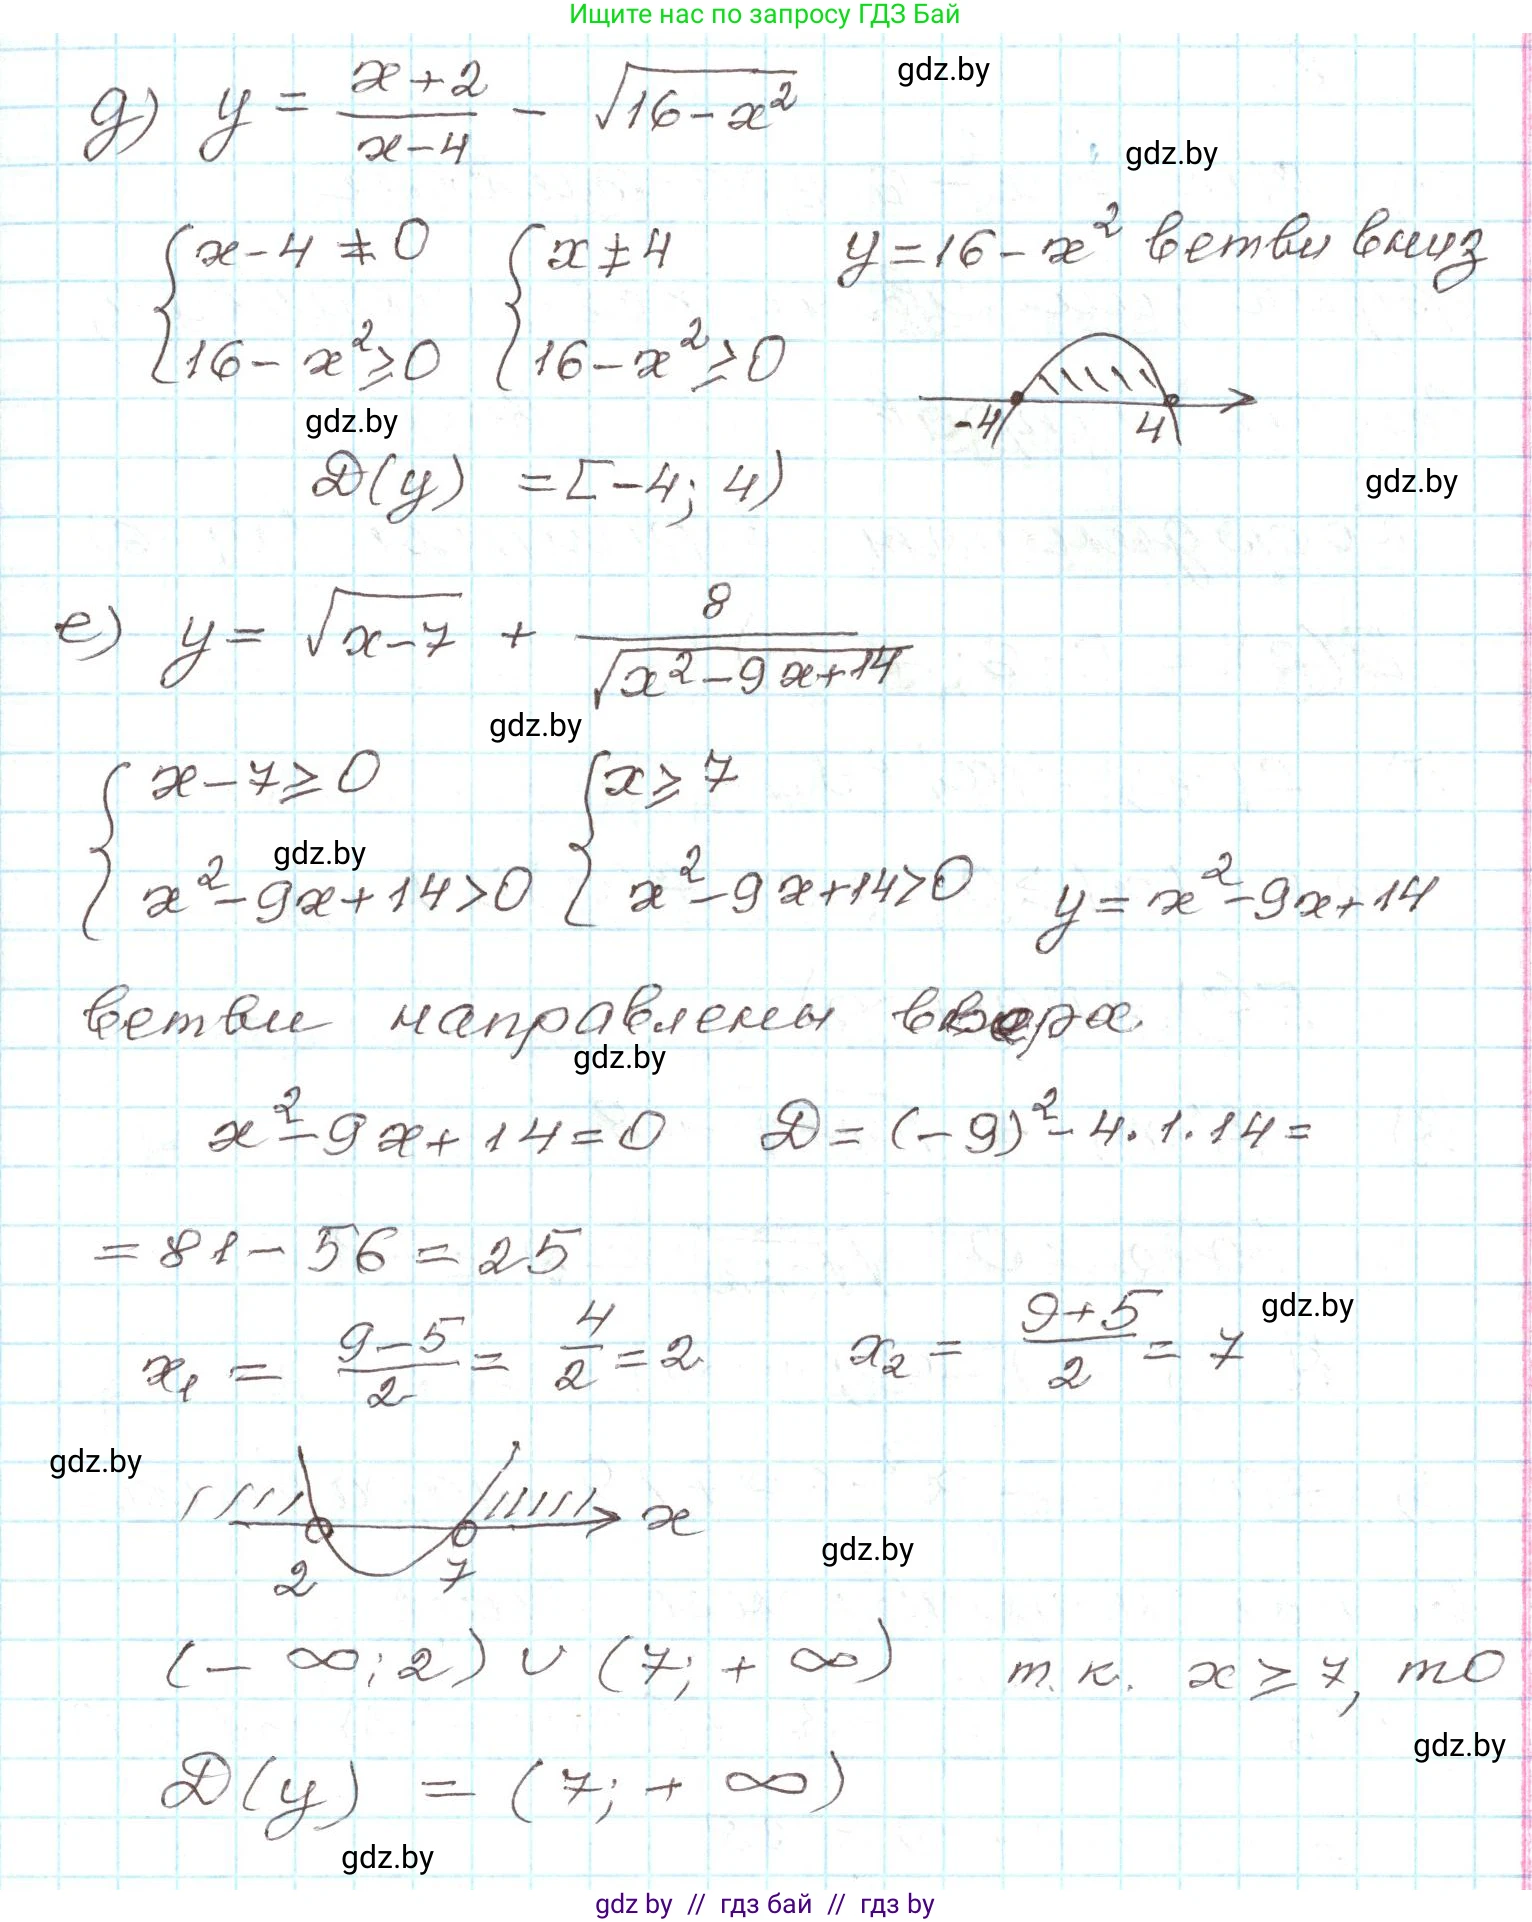 Ищите нас по запросу ГДЗ Бай
gdz.by
д) y = (x+2)/(x-4) - √(16-x²)
gdz.by
{x-4≠0 {x≠4 y=16-x² ветви вниз
{16-x²≥0 {16-x²≥0
-4 4
gdz.by
D(y) = [-4; 4)
gdz.by
е) y = √(x-7) + 8/√(x²-9x+14)
gdz.by
{x-7≥0 {x≥7
gdz.by
{x²-9x+14>0 {x²-9x+14>0 y=x²-9x+14
ветви направлены вверх
gdz.by
x²-9x+14=0 D=(-9)²-4·1·14=
=81-56=25
gdz.by
x₁ = (9-5)/2 = 4/2 = 2 x₂ = (9+5)/2 = 7
gdz.by
x
gdz.by
2 7
(-∞; 2) ∪ (7; +∞) т.к. x≥7, то
gdz.by
D(y) = (7; +∞)
gdz.by
gdz by // гдз бай // гдз by